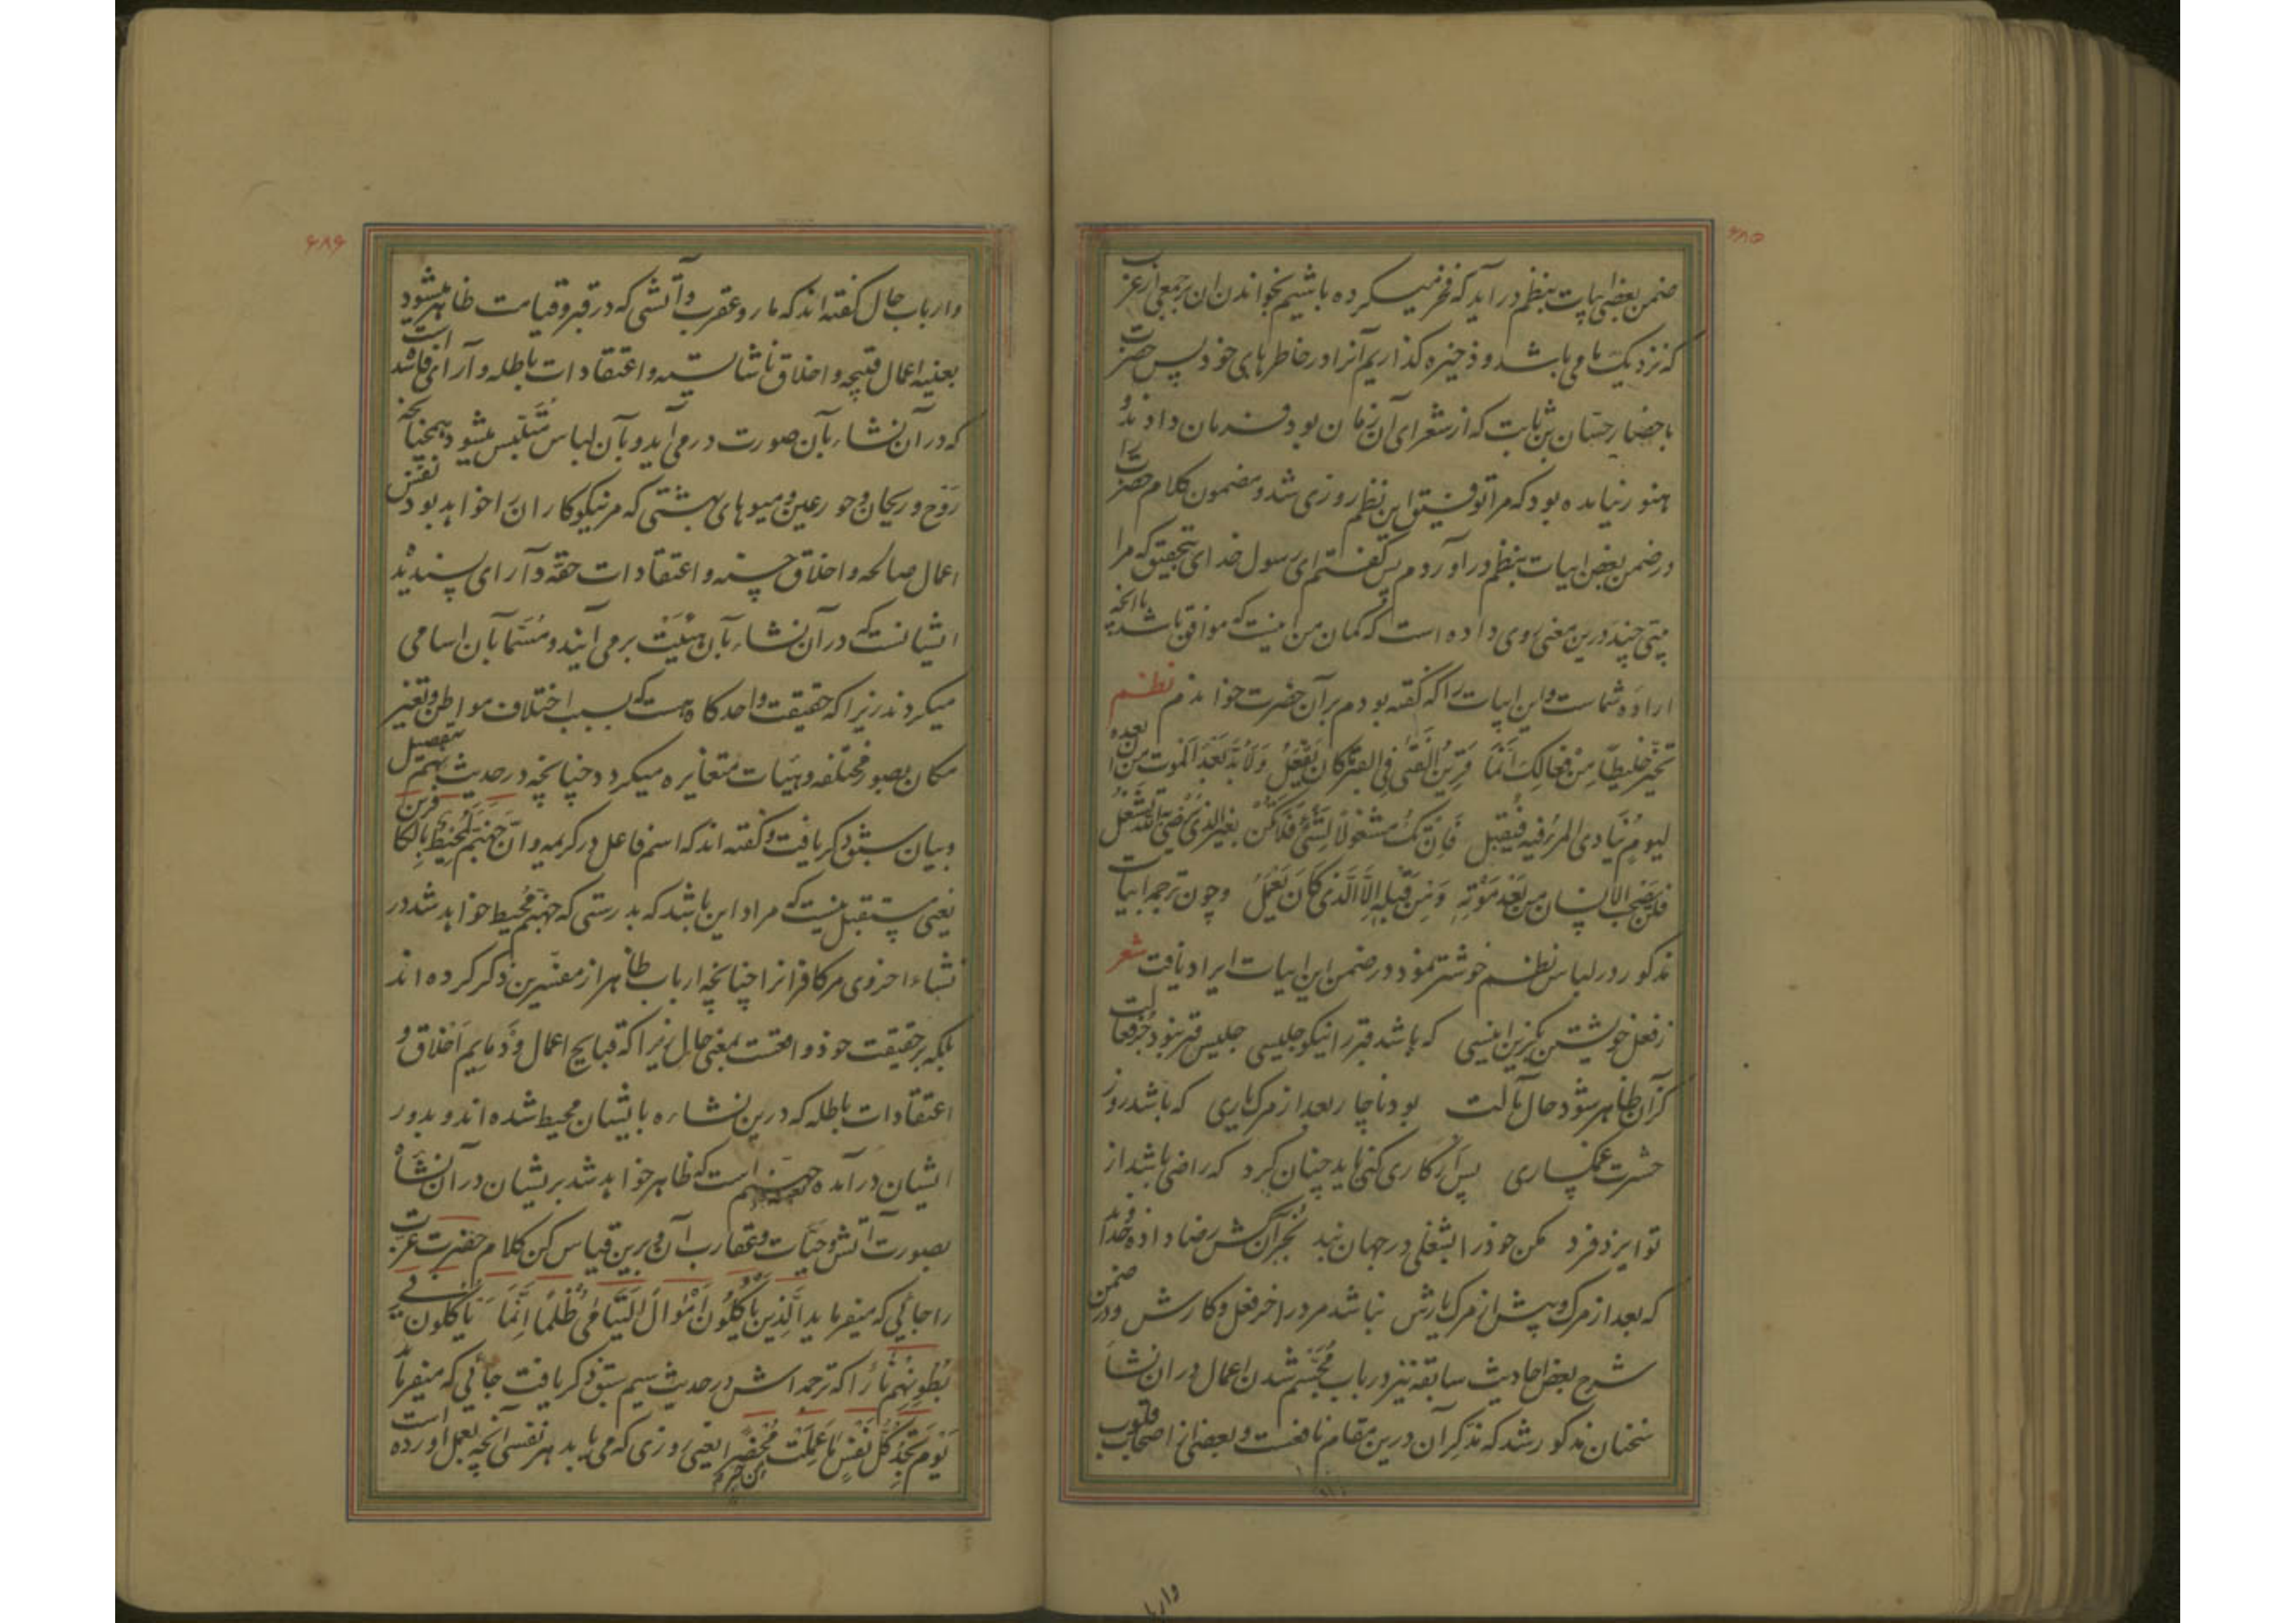 ۶۸۵
ضمن بعضی ابیات بنظم در آید که فخر میکرده باشیم بخواندن ان بر جمعی از عرب
که نزدیک ما می باشد و ذخیره گذاریم آنرا در خاطرهای خود پس حضرت
باحضار حسّان بن ثابت که از شعرای آن زمان بود فرمان دادند و
هنوز نیامده بود که مرا توفیق این نظم روزی شد و مضمون کلام حضرت را
در ضمن بعض ابیات بنظم در آوردم پس گفتم ای رسول خدای بتحقیق که مرا
بیتی چند درین معنی روی داده است که گمان من نیست که موافق باشد باانچه
اراده شماست و این ابیات را که گفته بودم بر آن حضرت خواندم نظم
تَخَیَّر خَلیطًا مِنْ فِعالِكَ اِنَّمَا قَرِینُ الْفَتٰی فِی الْقَبْرِ مَا کَانَ یَفْعَلُ وَلَا بُدَّ بَعْدَ الْمَوت مِنْ اَن تعده
لیومٍ یُنَادی المرءُ فیه فیُقبِل فَاِنْ تَكُ مشغولًا بِشَیْءٍ فَلَا تَکُنْ بِغَیْرِ الَّذی یَرْضٰی بِهِ اللّٰهُ تَشْغَلُ
فلَنْ یَصْحَبَ الاِنْسَان مِن بَعْدِ مَوْتِهِ وَمِن قَبْلِهِ اِلَّا الَّذی کَانَ یَعْمَلُ و چون ترجمه ابیات
مذکور در لباس نظم خوشتر نمود در ضمن این ابیات ایراد یافت شعر
ز فعل خویشتن بگزین انیسی که باشد قبر را نیکو جلیسی جلیس قبر نبود جز فعالت
کزآن ظاهر شود حال مآلت بود ناچار بعد از مرگ یاری که باشد روز
حشرت غمگساری پس ار کاری کنی باید چنان کرد که راضی باشد از
تو ایزد فرد مکن خود را بشغلی در جهان بند بجز آن کش رضا داده خداوند
که بعد از مرگ و پیش از مرگ یارش نباشد مرد را جز فعل و کارش و در ضمن
شرح بعض احادیث سابقه نیز در باب مُجَسَّم شدن اعمال در ان نشأ
سخنان مذکور شد که تذکر آن درین مقام نافعست و بعضی از اصحاب قلوب
واربا
۶۸۶
و ارباب حال گفته اند که مار و عقرب و آتشی که در قبر و قیامت ظاهر میشود
بعینه اعمال قبیحه و اخلاق ناشایسته و اعتقادات باطله و آرای فاسد است
که در آن نشاء بآن صورت در می آید و بآن لباس مُتَلَبِّس میشود همچنانچه
رَوْح و ریحان و حور عین و میوهای بهشتی که مر نیکوکاران را خواهد بود نفس
اعمال صالحه و اخلاق حسنه و اعتقادات حقّه و آرای پسندیده
ایشانست که در آن نشاء بآن هیئت برمی آیند و مُسَمّا بآن اسامی
میگردند زیرا که حقیقت واحد گاه هست که بسبب اختلاف مواطن و تغیر
مکان بصور مختلفه و هیأت متغایره میگردد چنانچه در حدیث نهم تفصیل
و بیان سبق ذکر یافت و گفته اند که اسم فاعل در کریمه و اِنَّ جَهَنَّمَ لَمُحِیطَةٌ بِالْکافِرین
بمعنی مستقبل نیست که مراد این باشد که بدرستی که جهنم محیط خواهد شد در
نشاء اخروی مر کافرانرا چنانچه ارباب ظاهر از مفسّرین ذکر کرده اند
بلکه بر حقیقت خود واقعست بمعنی حال زیرا که قبایح اعمال و ذمایم اخلاق و
اعتقادات باطله که درین نشاءه بایشان محیط شده اند و بدور
ایشان در آمده جهنم است که ظاهر خواهد شد بریشان در آن نشأه
بصورت آتش و حیّات و عقارب آن و برین قیاس کن کلام حضرت عزت
را جائی که میفرماید الَّذِینَ یَاْکُلُونَ اَمْوَالَ الْیَتَامٰی ظُلْمًا اِنَّمَا یَاْکُلُونَ فِی
بُطُونِهِمْ نَارًا که ترجمه اش در حدیث سیم سبق ذکر یافت جائی که میفرماید
یَوْمَ تَجِدُ کُلُّ نَفْسٍ مَا عَمِلَتْ مُحْضَرًا یعنی روزی که می یابد هر نفسی آنچه بعمل اورده است